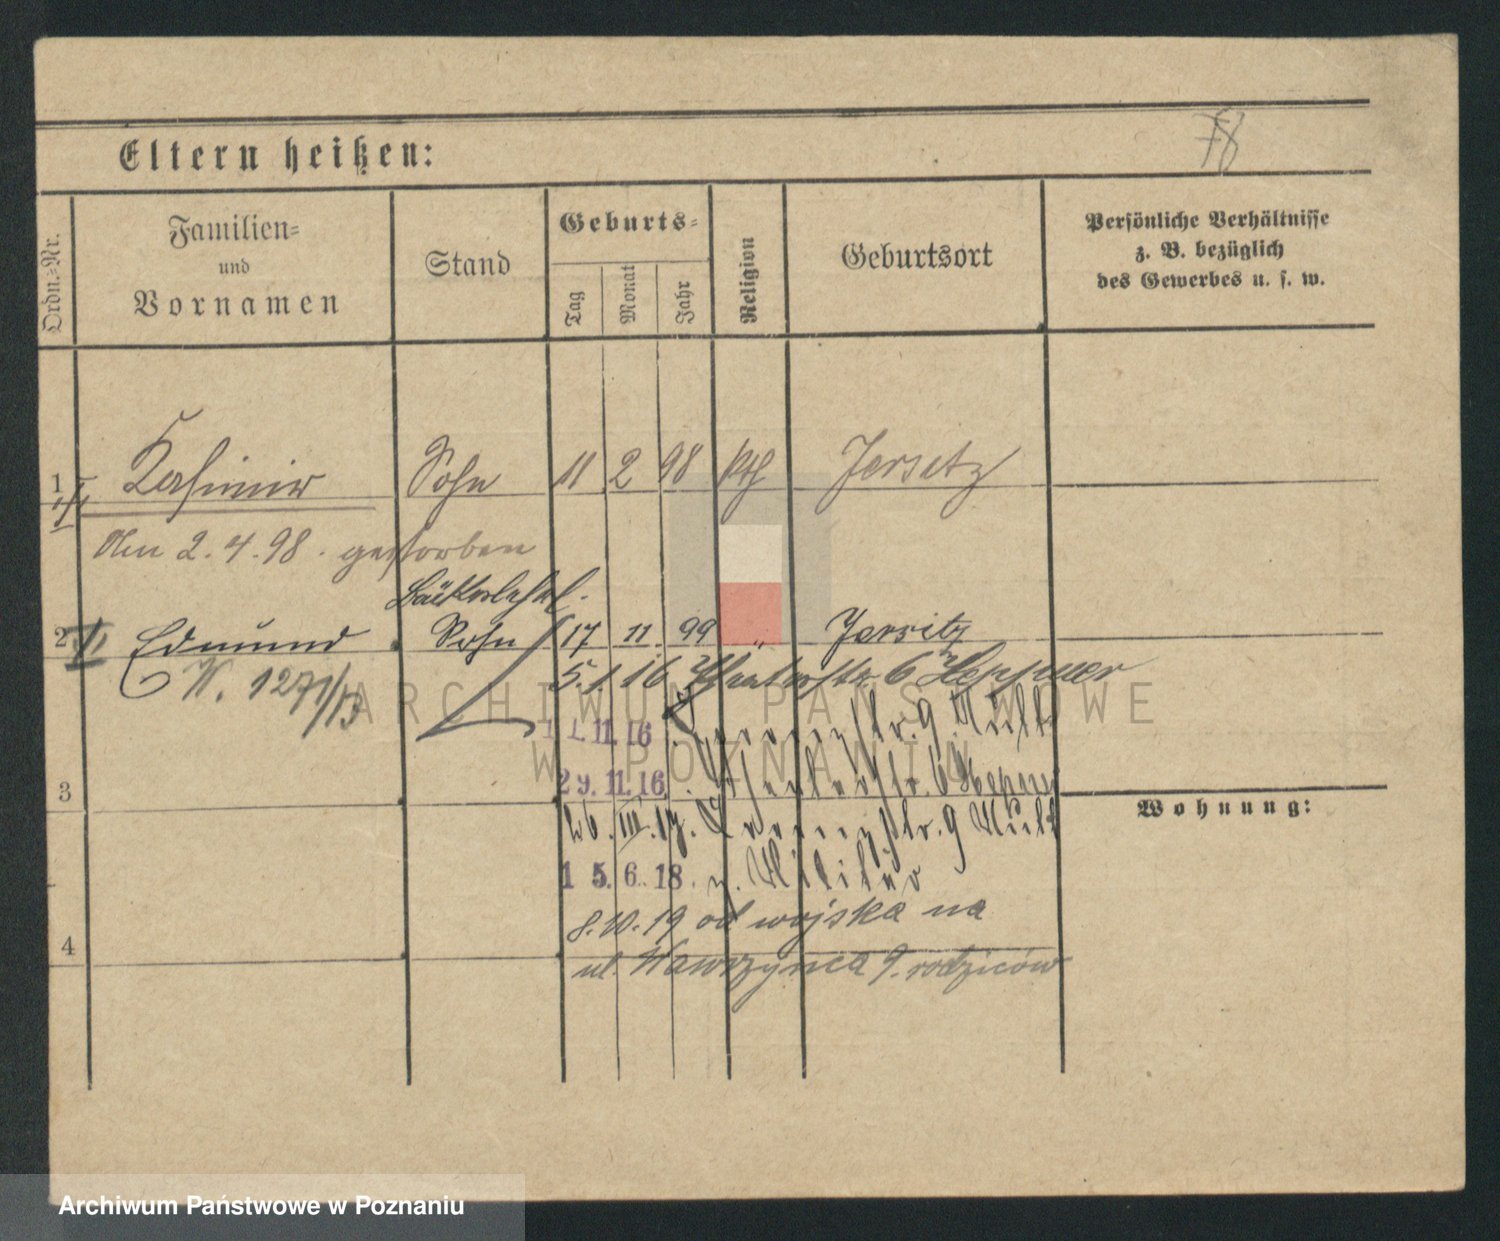 78
Eltern heißen:
Ordn.-Nr.
Familien- und Vornamen
Stand
Geburts-
Tag
Monat
Jahr
Religion
Geburtsort
Persönliche Verhältnisse
z. B. bezüglich
des Gewerbes u. s. w.
1 Kasimir Sohn 11 2 98 kth Jersitz
Am 2.4.98. gestorben
Bäckerlehrl.
2 Edmund Sohn 17 11 99 " Jersitz
5.1.16 6 Heppner
K. 1271/13
11.11.16 9
29.11.16 6
3
Wohnung:
26.III.17. 9
15.6.18. z. Militär
8.10.19 od wojska na
4
ul. Wawrzyńca 9. rodziców
ARCHIWUM PAŃSTWOWE
W POZNANIU
Archiwum Państwowe w Poznaniu